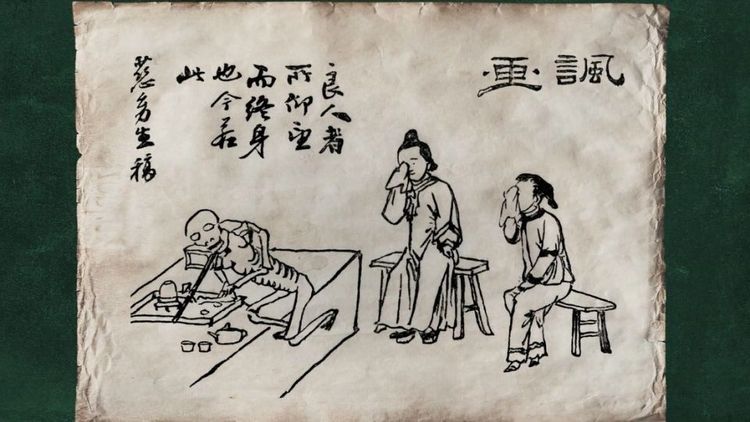 諷畫
良人者
所仰望
而終身
也今若
此
生稿